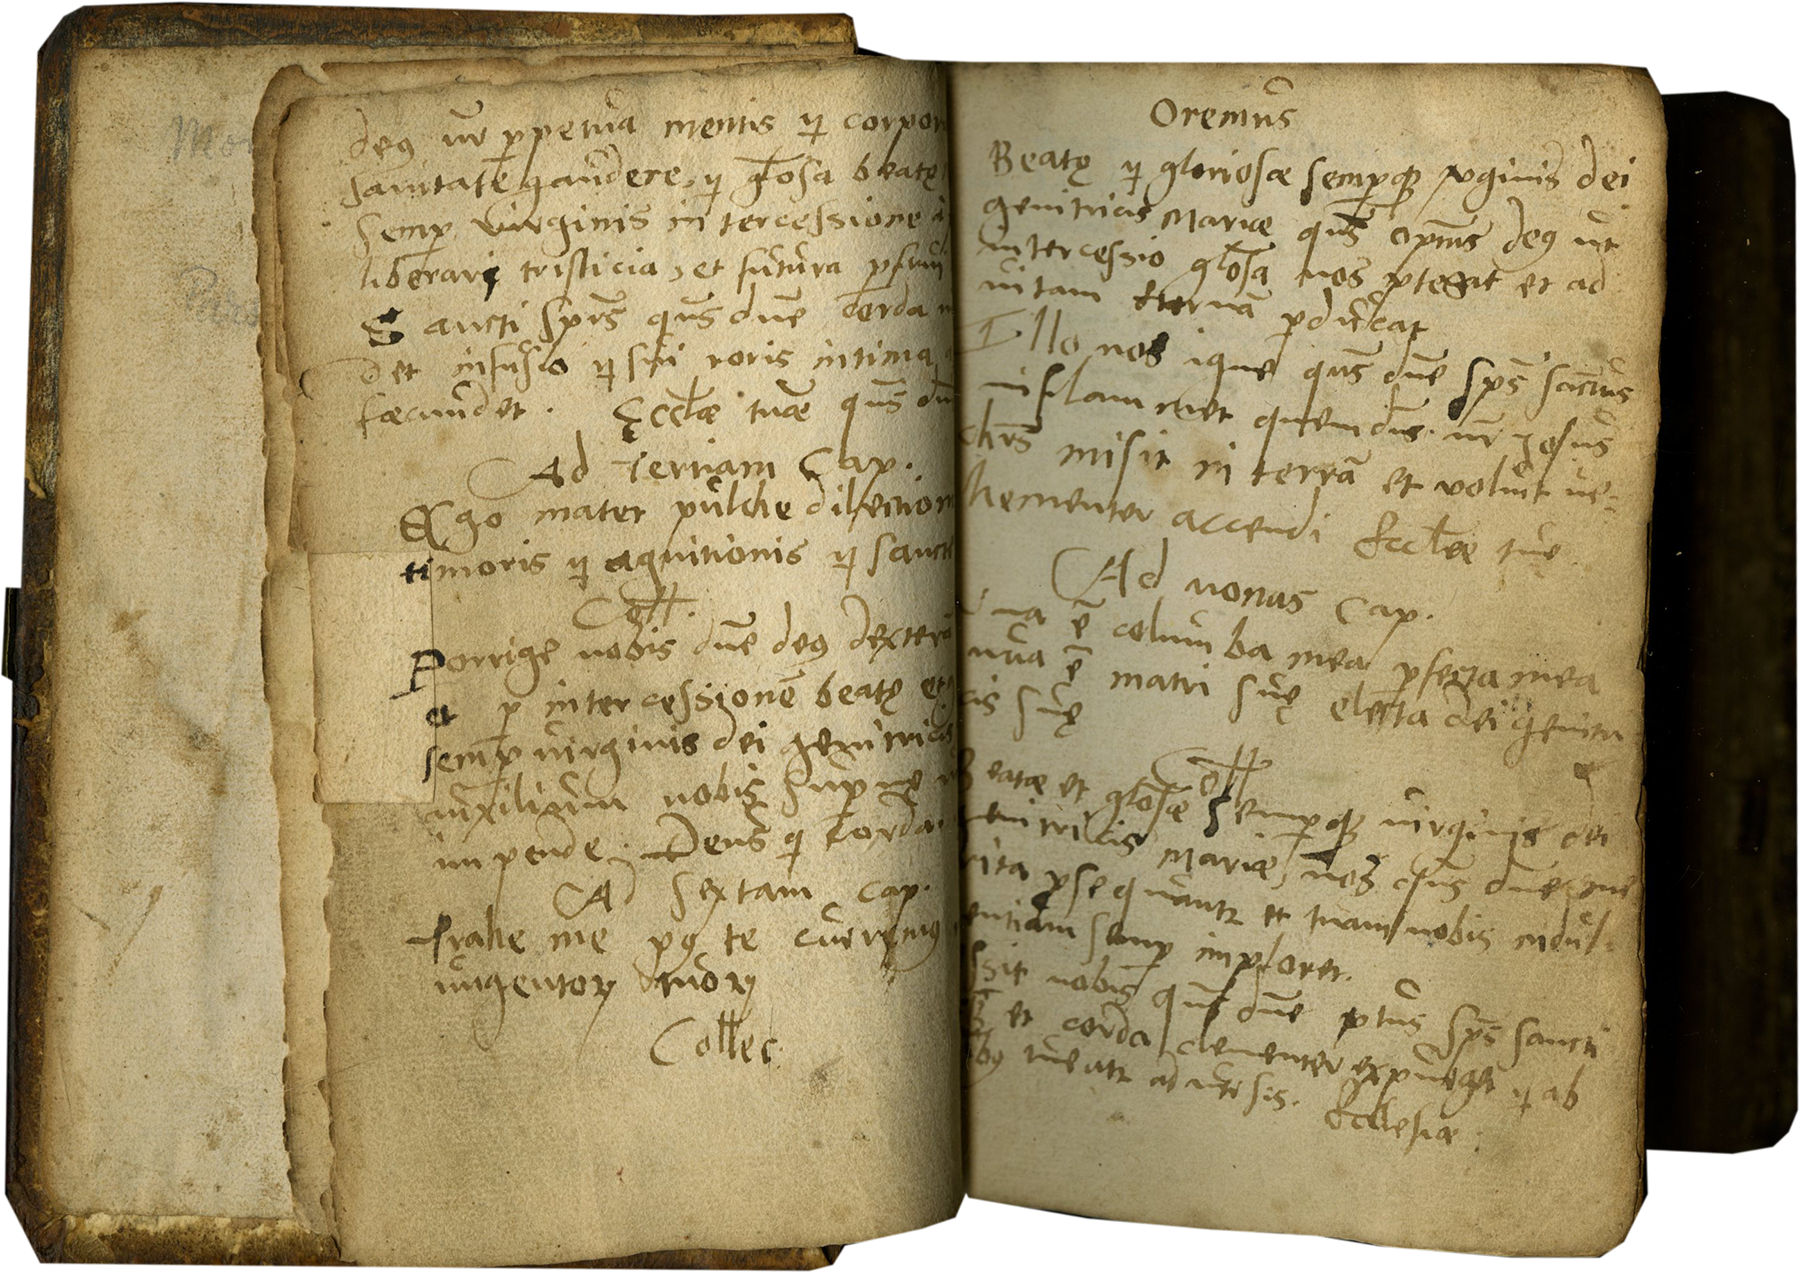 Mor
Pars
deꝰ nr̄ ꝑpetua mentis et corpor
sanitate gaudere, et gl̄osa beatę
semꝑ virginis intercessione a
liberari tristicia, et futura ꝑfrui
Sancti sp̄us qūs dn̄e corda n
det infusio et sui roris intima
fœcundet. Eccl̄æ tuæ qūs dn̄
Ad tertiam Cap.
Ego mater pulche dilection
timoris et agnitionis et sancte
Coll.
Porrige nobis dn̄e deꝰ dexterā
et ꝑ intercessionē beatę et
semꝑ virginis dei genitricis
auxilium nobis supne
impende. Deus qi corda
Ad sextam cap.
Trahe me pꝰ te curremꝰ
ungentoꝝ tuoꝝ
Collec.
Oremus
Beatę et gloriosæ sempꝙ vginis dei
genitricis Mariæ qūs om̄ps deꝰ ut
intercessio gl̄osa nos ꝓtegat et ad
uitam eternā ꝑducat
Illo nos igne qūs dn̄e sp̄s sanctus
inflammet quem dn̄s nr̄ Jesus
chrs̄ misit in terrā et voluit ue-
hementer accendi Eccl̄eæ tue
Ad nonas Cap.
Una ē columba mea ꝑfecta mea
una ē matri suę electa dei genitri
cis suę
Coll
Beatæ et gl̄osæ sempꝙ uirginis dei
genitricis Mariæ, nos qūs dn̄e me
rita ꝓsequantr et tuam nobis indul
entiam semꝑ imploret.
ssit nobis qūs dn̄e vtus sp̄s sancti
et corda clementer expurget et ab
bꝰ tueatr aduersis. Ecclesiæ